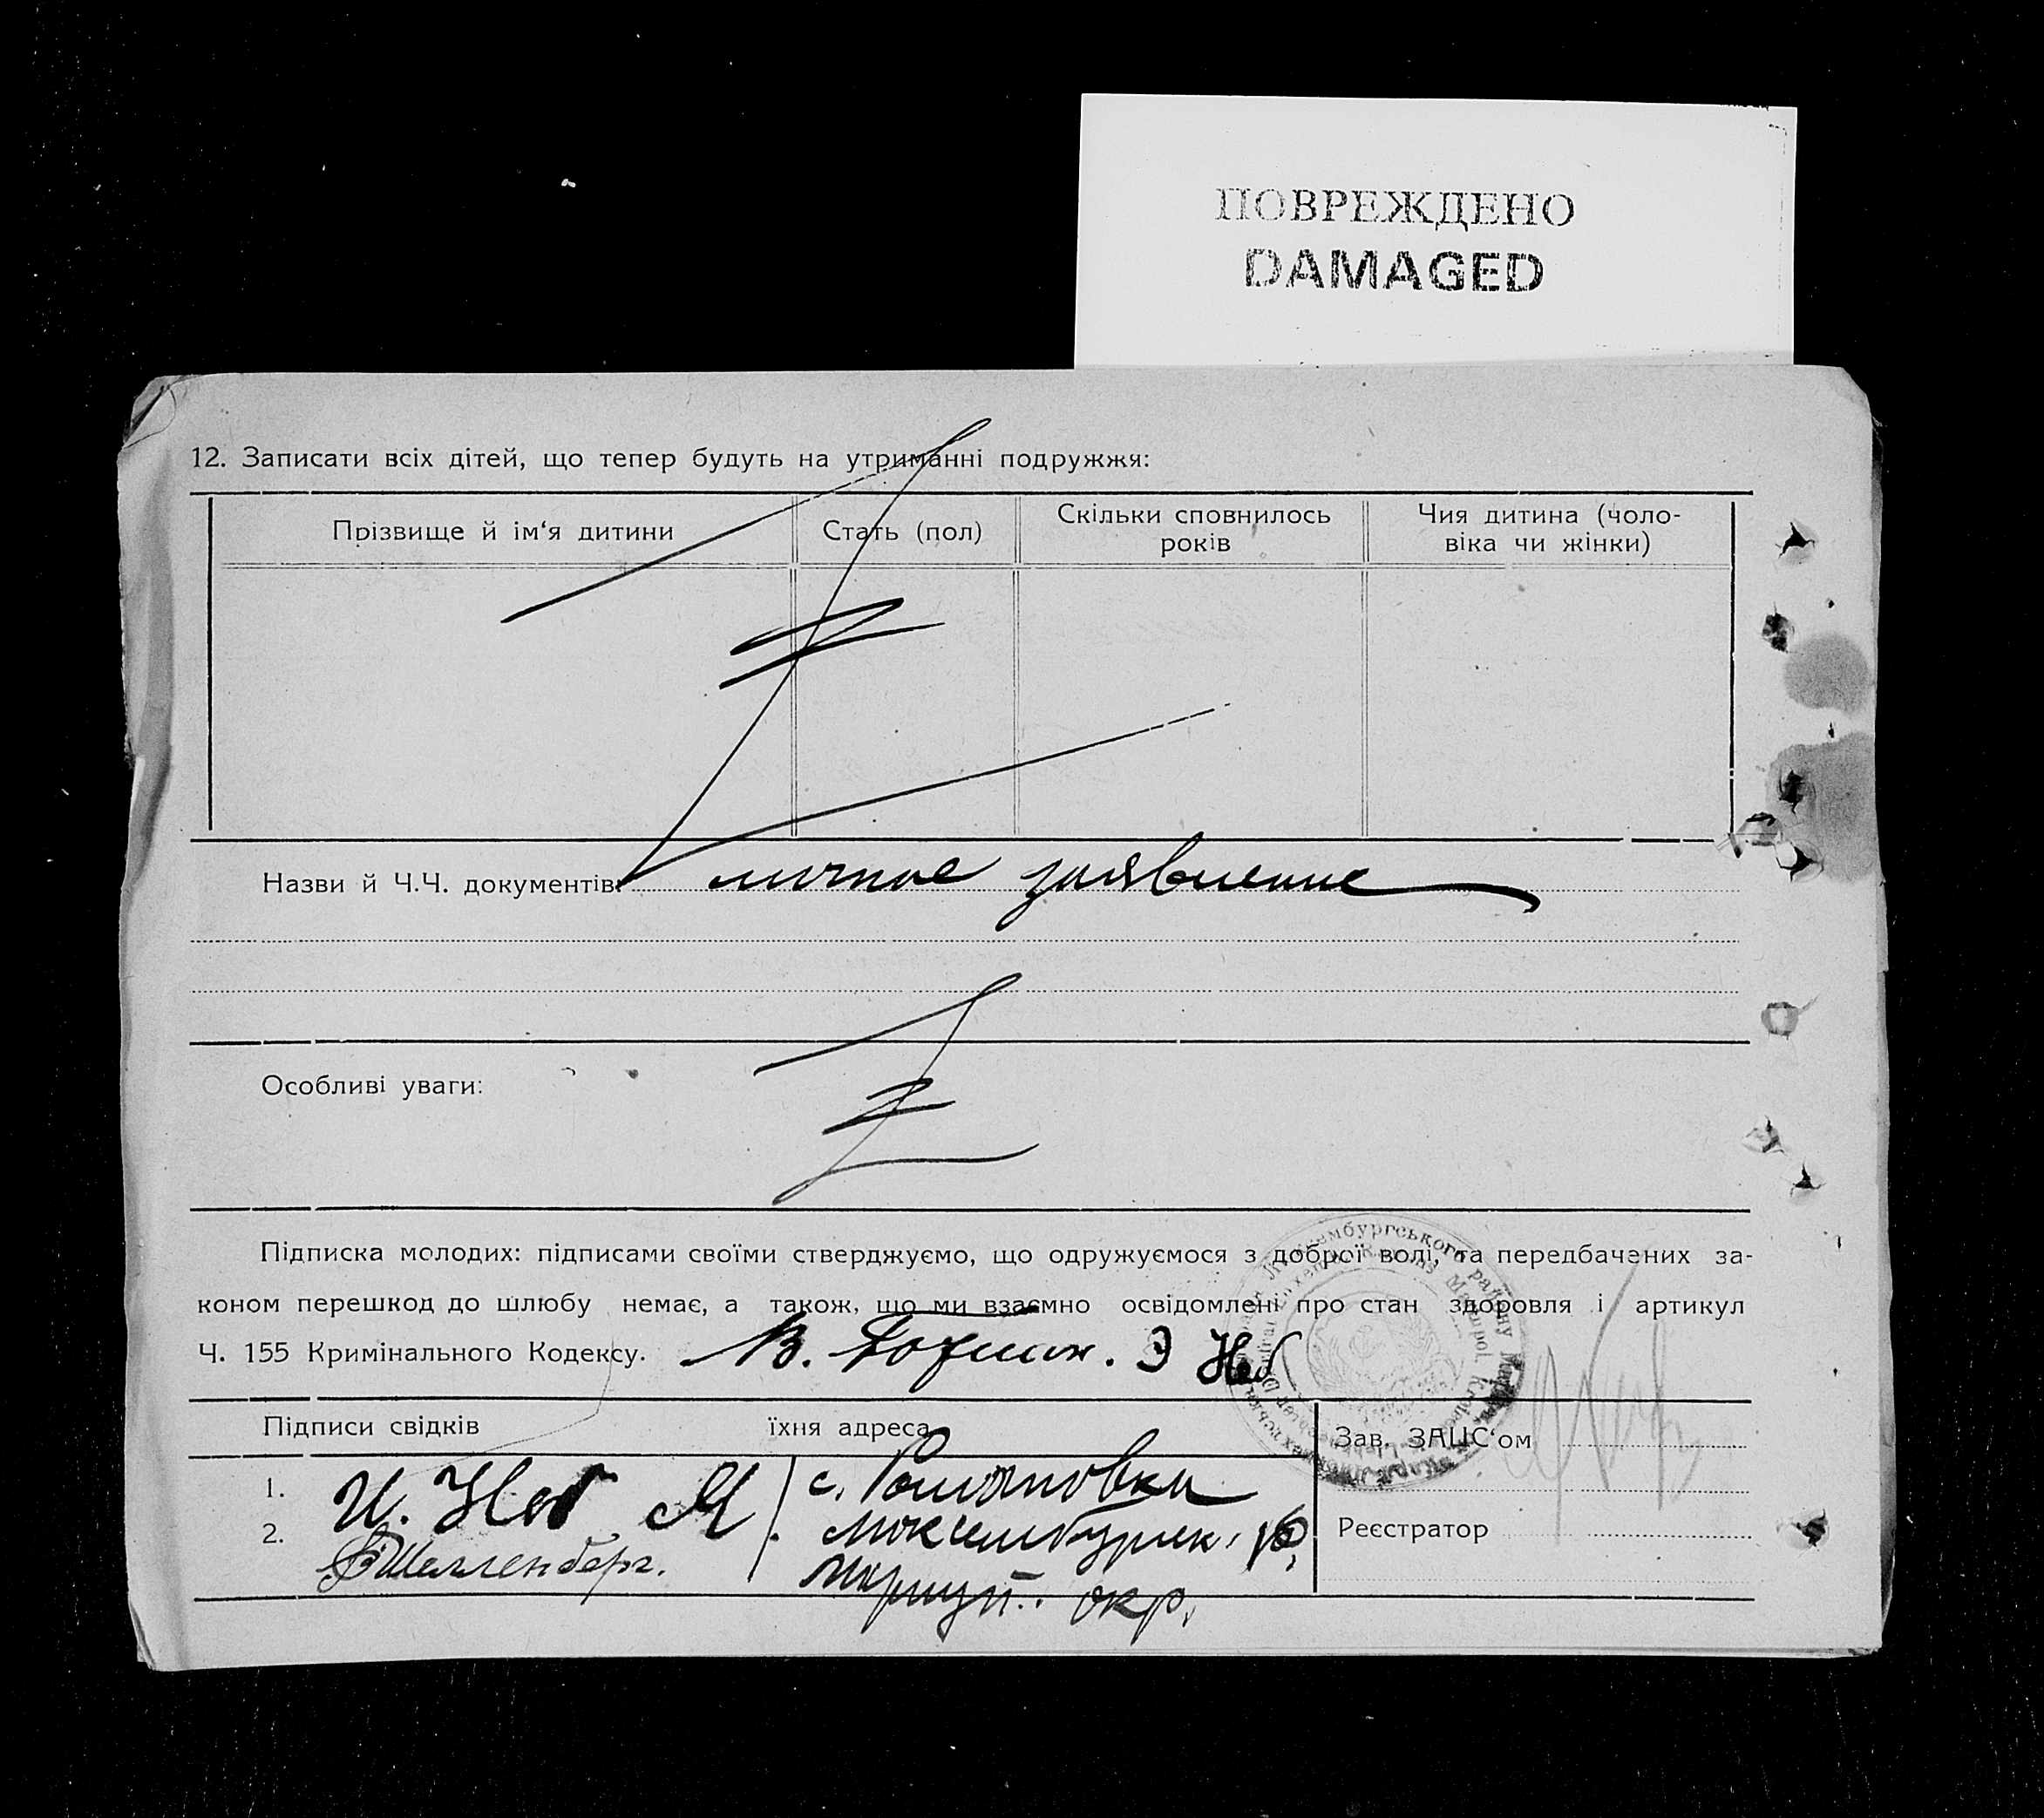 ПОВРЕЖДЕНО
DAMAGED
12. Записати всіх дітей, що тепер будуть на утриманні подружжя:
Прізвище й ім‘я дитини
Стать (пол)
Скільки сповнилось
років
Чия дитина (чоло-
віка чи жінки)
Назви й Ч.Ч. документів: личное заявление
Особливі уваги:
Підписка молодих: підписами своїми стверджуємо, що одружуємося з доброї волі, та передбачених за-
коном перешкод до шлюбу немає, а також, що ми взаємно освідомлені про стан здоровля і артикул
Ч. 155 Кримінального Кодексу. В. Э
Підписи свідків
їхня адреса
Зав. ЗАЦС‘ом
1. И. с. Романовка
2. Шелленберг. Люксембургск. р
Мариуп. окр.
Реєстратор